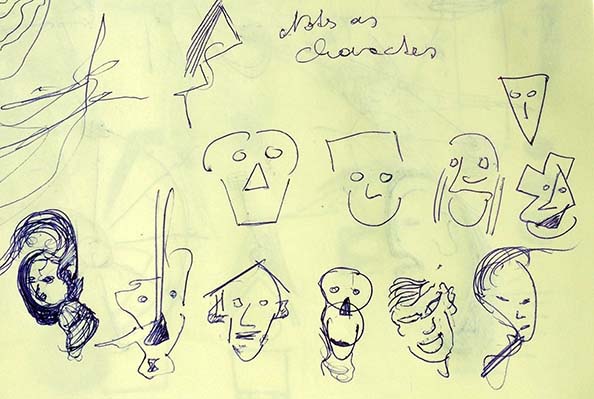 Nots as
characters